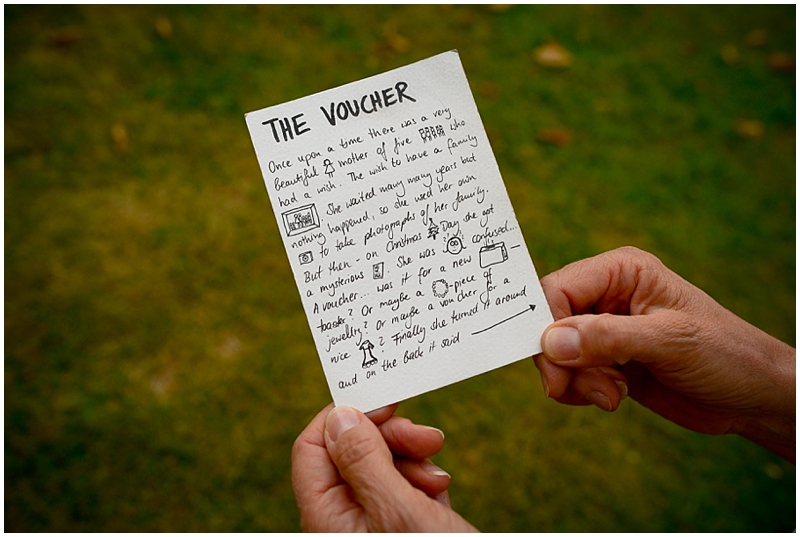 THE VOUCHER
Once upon a time there was a very
beautiful mother of five who
had a wish. The wish to have a family
. She waited many many years but
nothing happened, so she used her own
to take photographs of her family.
But then - on Christmas Day she got
a mysterious . She was confused...
A voucher... was it for a new -
toaster? Or maybe a -piece of
jewellry? Or maybe a voucher for a
nice ? Finally she turned it around
and on the back it said